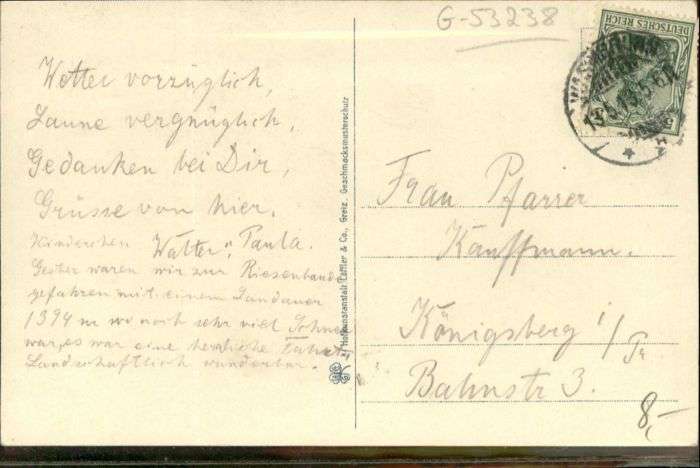 G-53238
DEUTSCHES REICH
5
13.5.13.5-6N.
Wetter vorzüglich,
Laune vergnüglich,
Gedanken bei Dir,
Grüsse von hier.
Walter, Paula.
Gestern waren wir zur Riesenbaude
gefahren mit einem Landauer
1394 m wo noch sehr viel Schnee
war, es war eine herrliche Fahrt,
Landschaftlich wunderbar.
Hofkunstanstalt Löffler & Co., Greiz. Geschmacksmusterschutz
Frau Pfarrer
Kauffmann.
Königsberg i/Pr
Bahnstr 3.
8,-